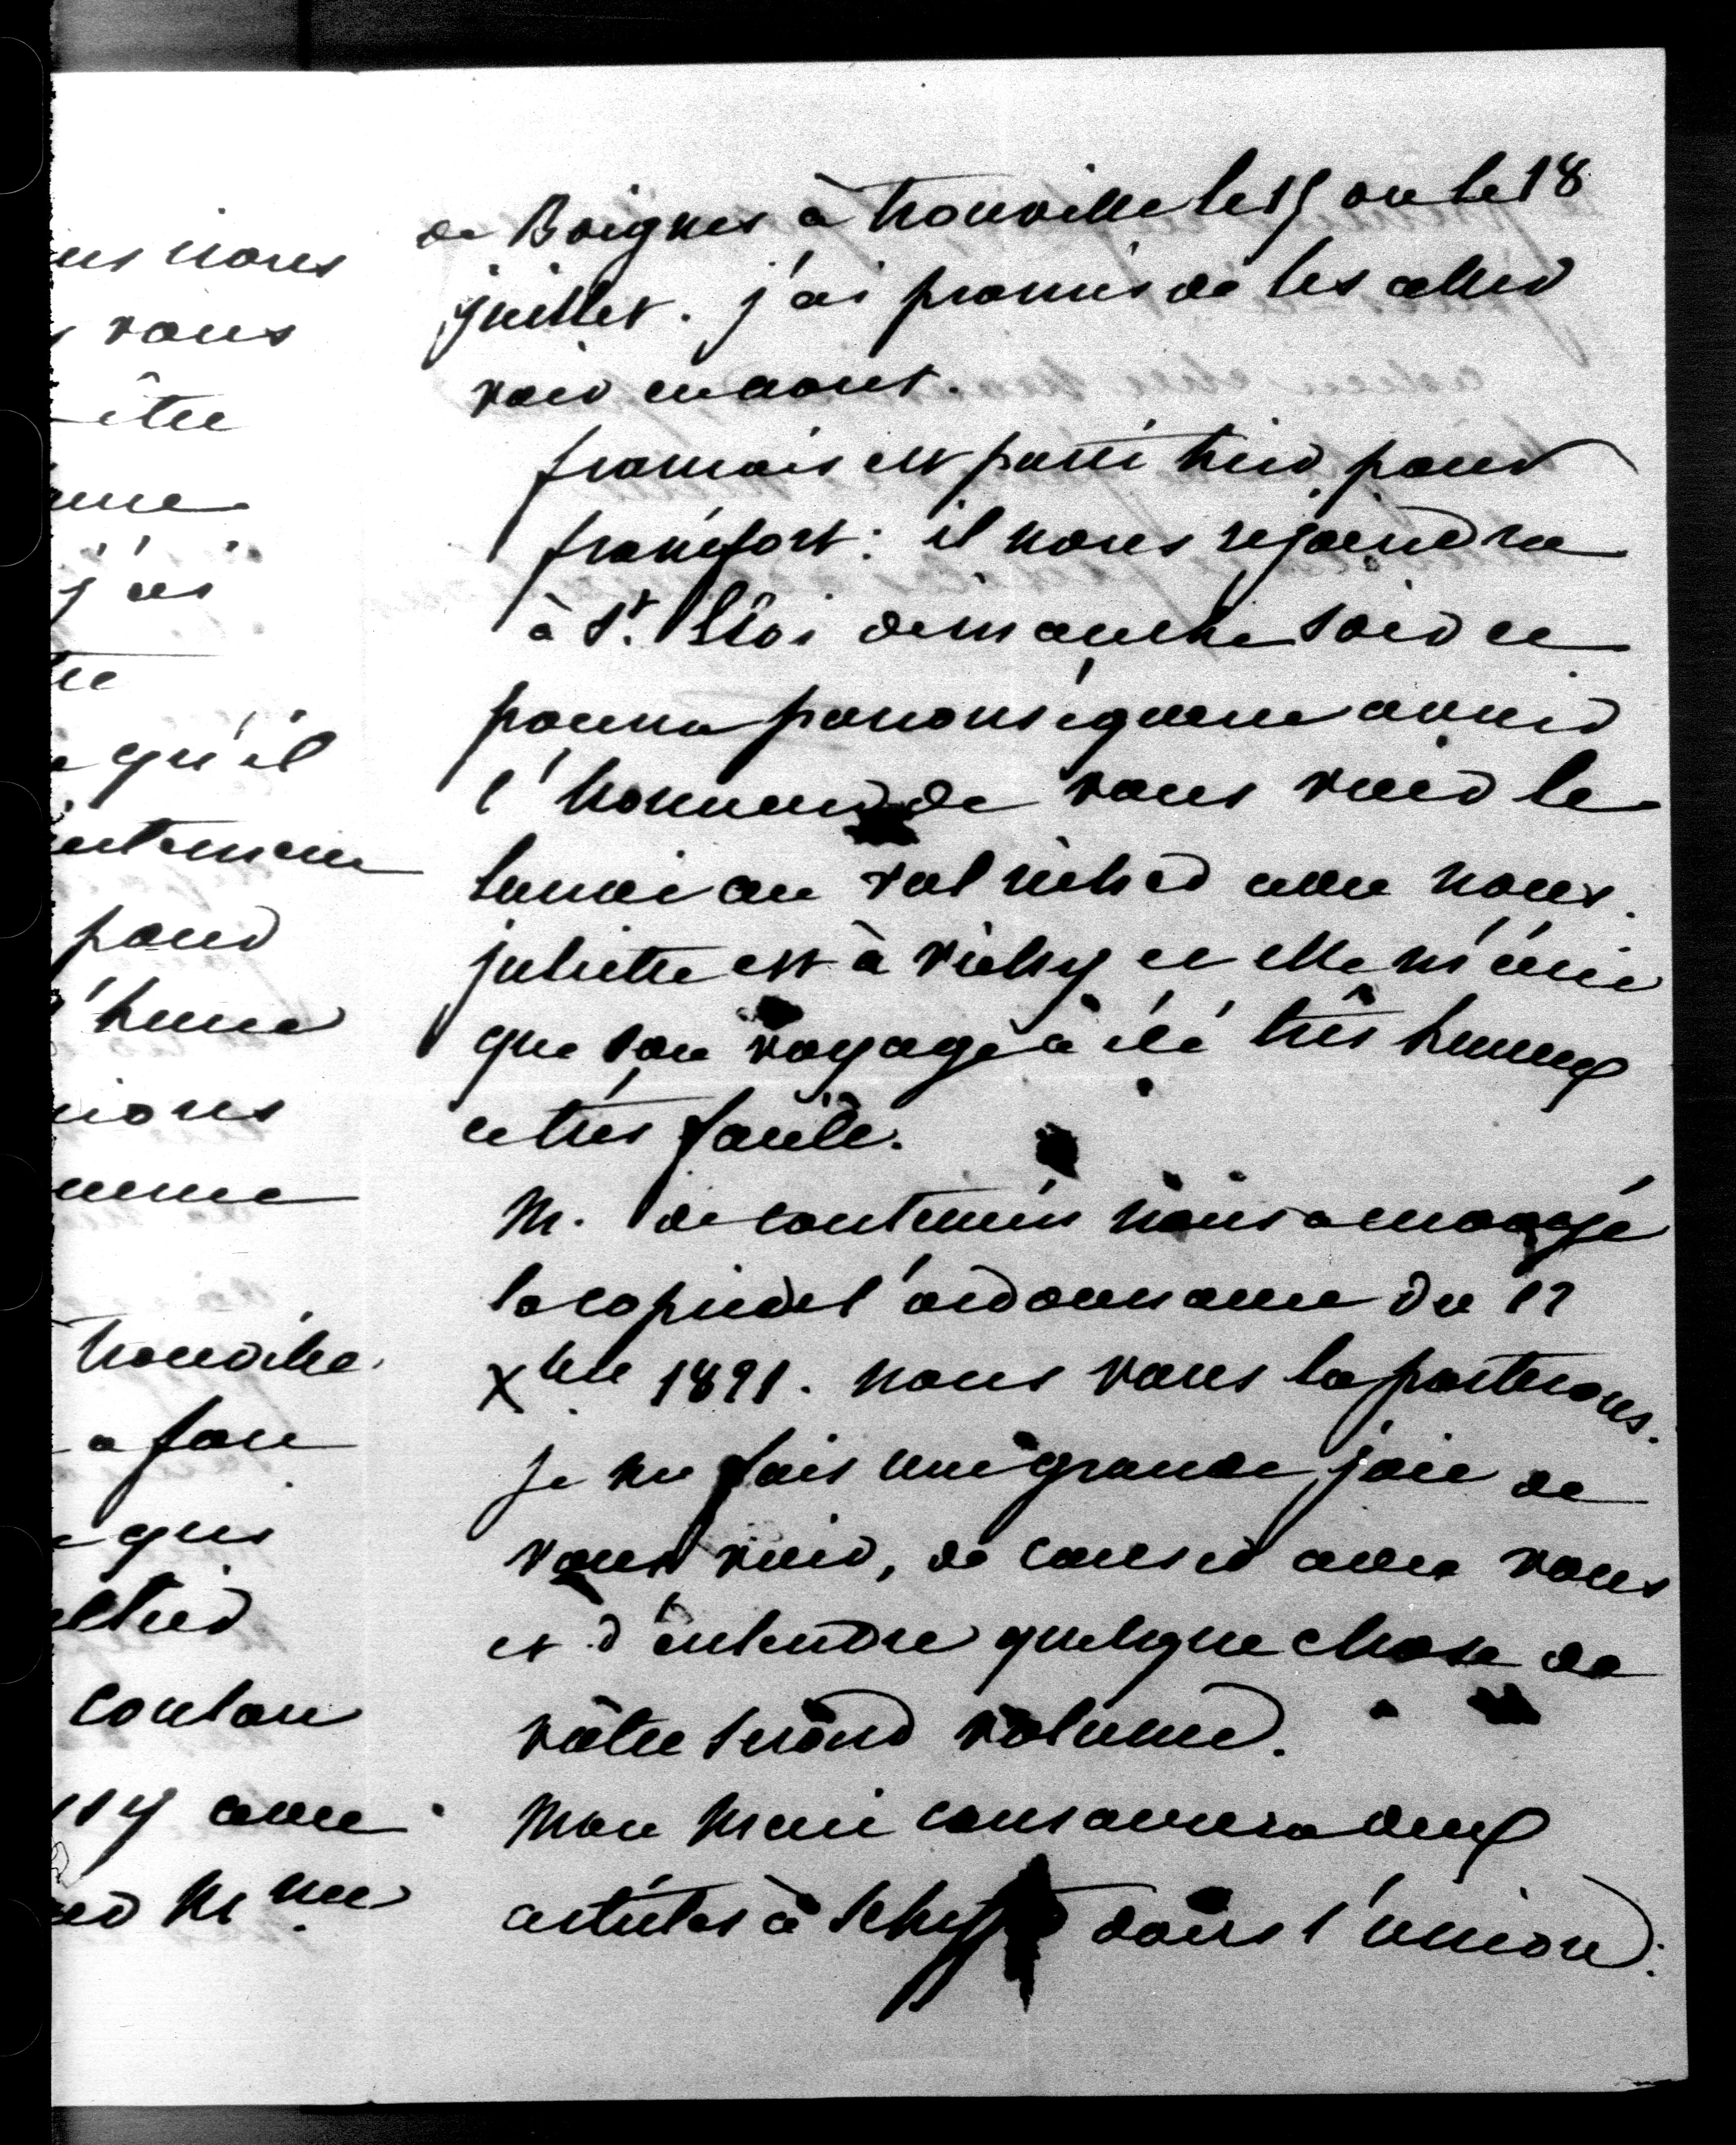 us nous
vous
être
j'ai
qu'il
pour
l'heure
trouville
a fait
qui
avec
Mme
de Boignes à trouville le 15 ou le 18
juillet. j'ai promis de les aller
voir en aout.
francois est parti hier pour
francfort : il nous rejoindra
à St. Eloi dimanche soir et
pourra par conséquent avoir
l'honneur de vous voir le
lundi au val richer avec nous.
juliette est à vichy et elle m'écrit
que son voyage a été très heureux
et très facile.
M. de nous a envoyé
la copie de l'ordonnance du 17
Xbre 1821. nous vous la porterons.
je me fais une grande joie de
vous voir, de causer avec vous
et d'entendre quelque chose de
vôtre second volume.
Mon Mari consacrera deux
articles à Scheffer dans l'union :